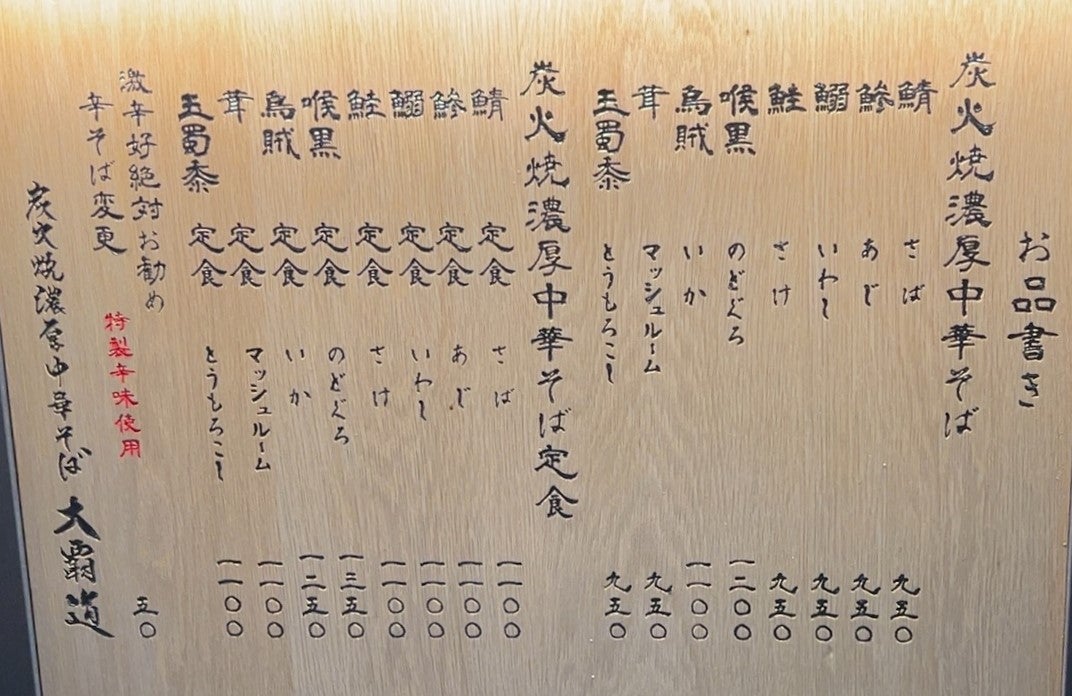 お品書き
炭火焼濃厚中華そば
鯖 さば 九五〇
鯵 あじ 九五〇
鰯 いわし 九五〇
鮭 さけ 九五〇
喉黒 のどぐろ 一二〇〇
烏賊 いか 一一〇〇
茸 マッシュルーム 九五〇
玉蜀黍 とうもろこし 九五〇
炭火焼濃厚中華そば定食
鯖 定食 さば 一一〇〇
鯵 定食 あじ 一一〇〇
鰯 定食 いわし 一一〇〇
鮭 定食 さけ 一一〇〇
喉黒 定食 のどぐろ 一三五〇
烏賊 定食 いか 一二五〇
茸 定食 マッシュルーム 一一〇〇
玉蜀黍 定食 とうもろこし 一一〇〇
激辛好絶対お勧め
辛そば変更 特製辛味使用 五〇
炭火焼濃厚中華そば 大覇道